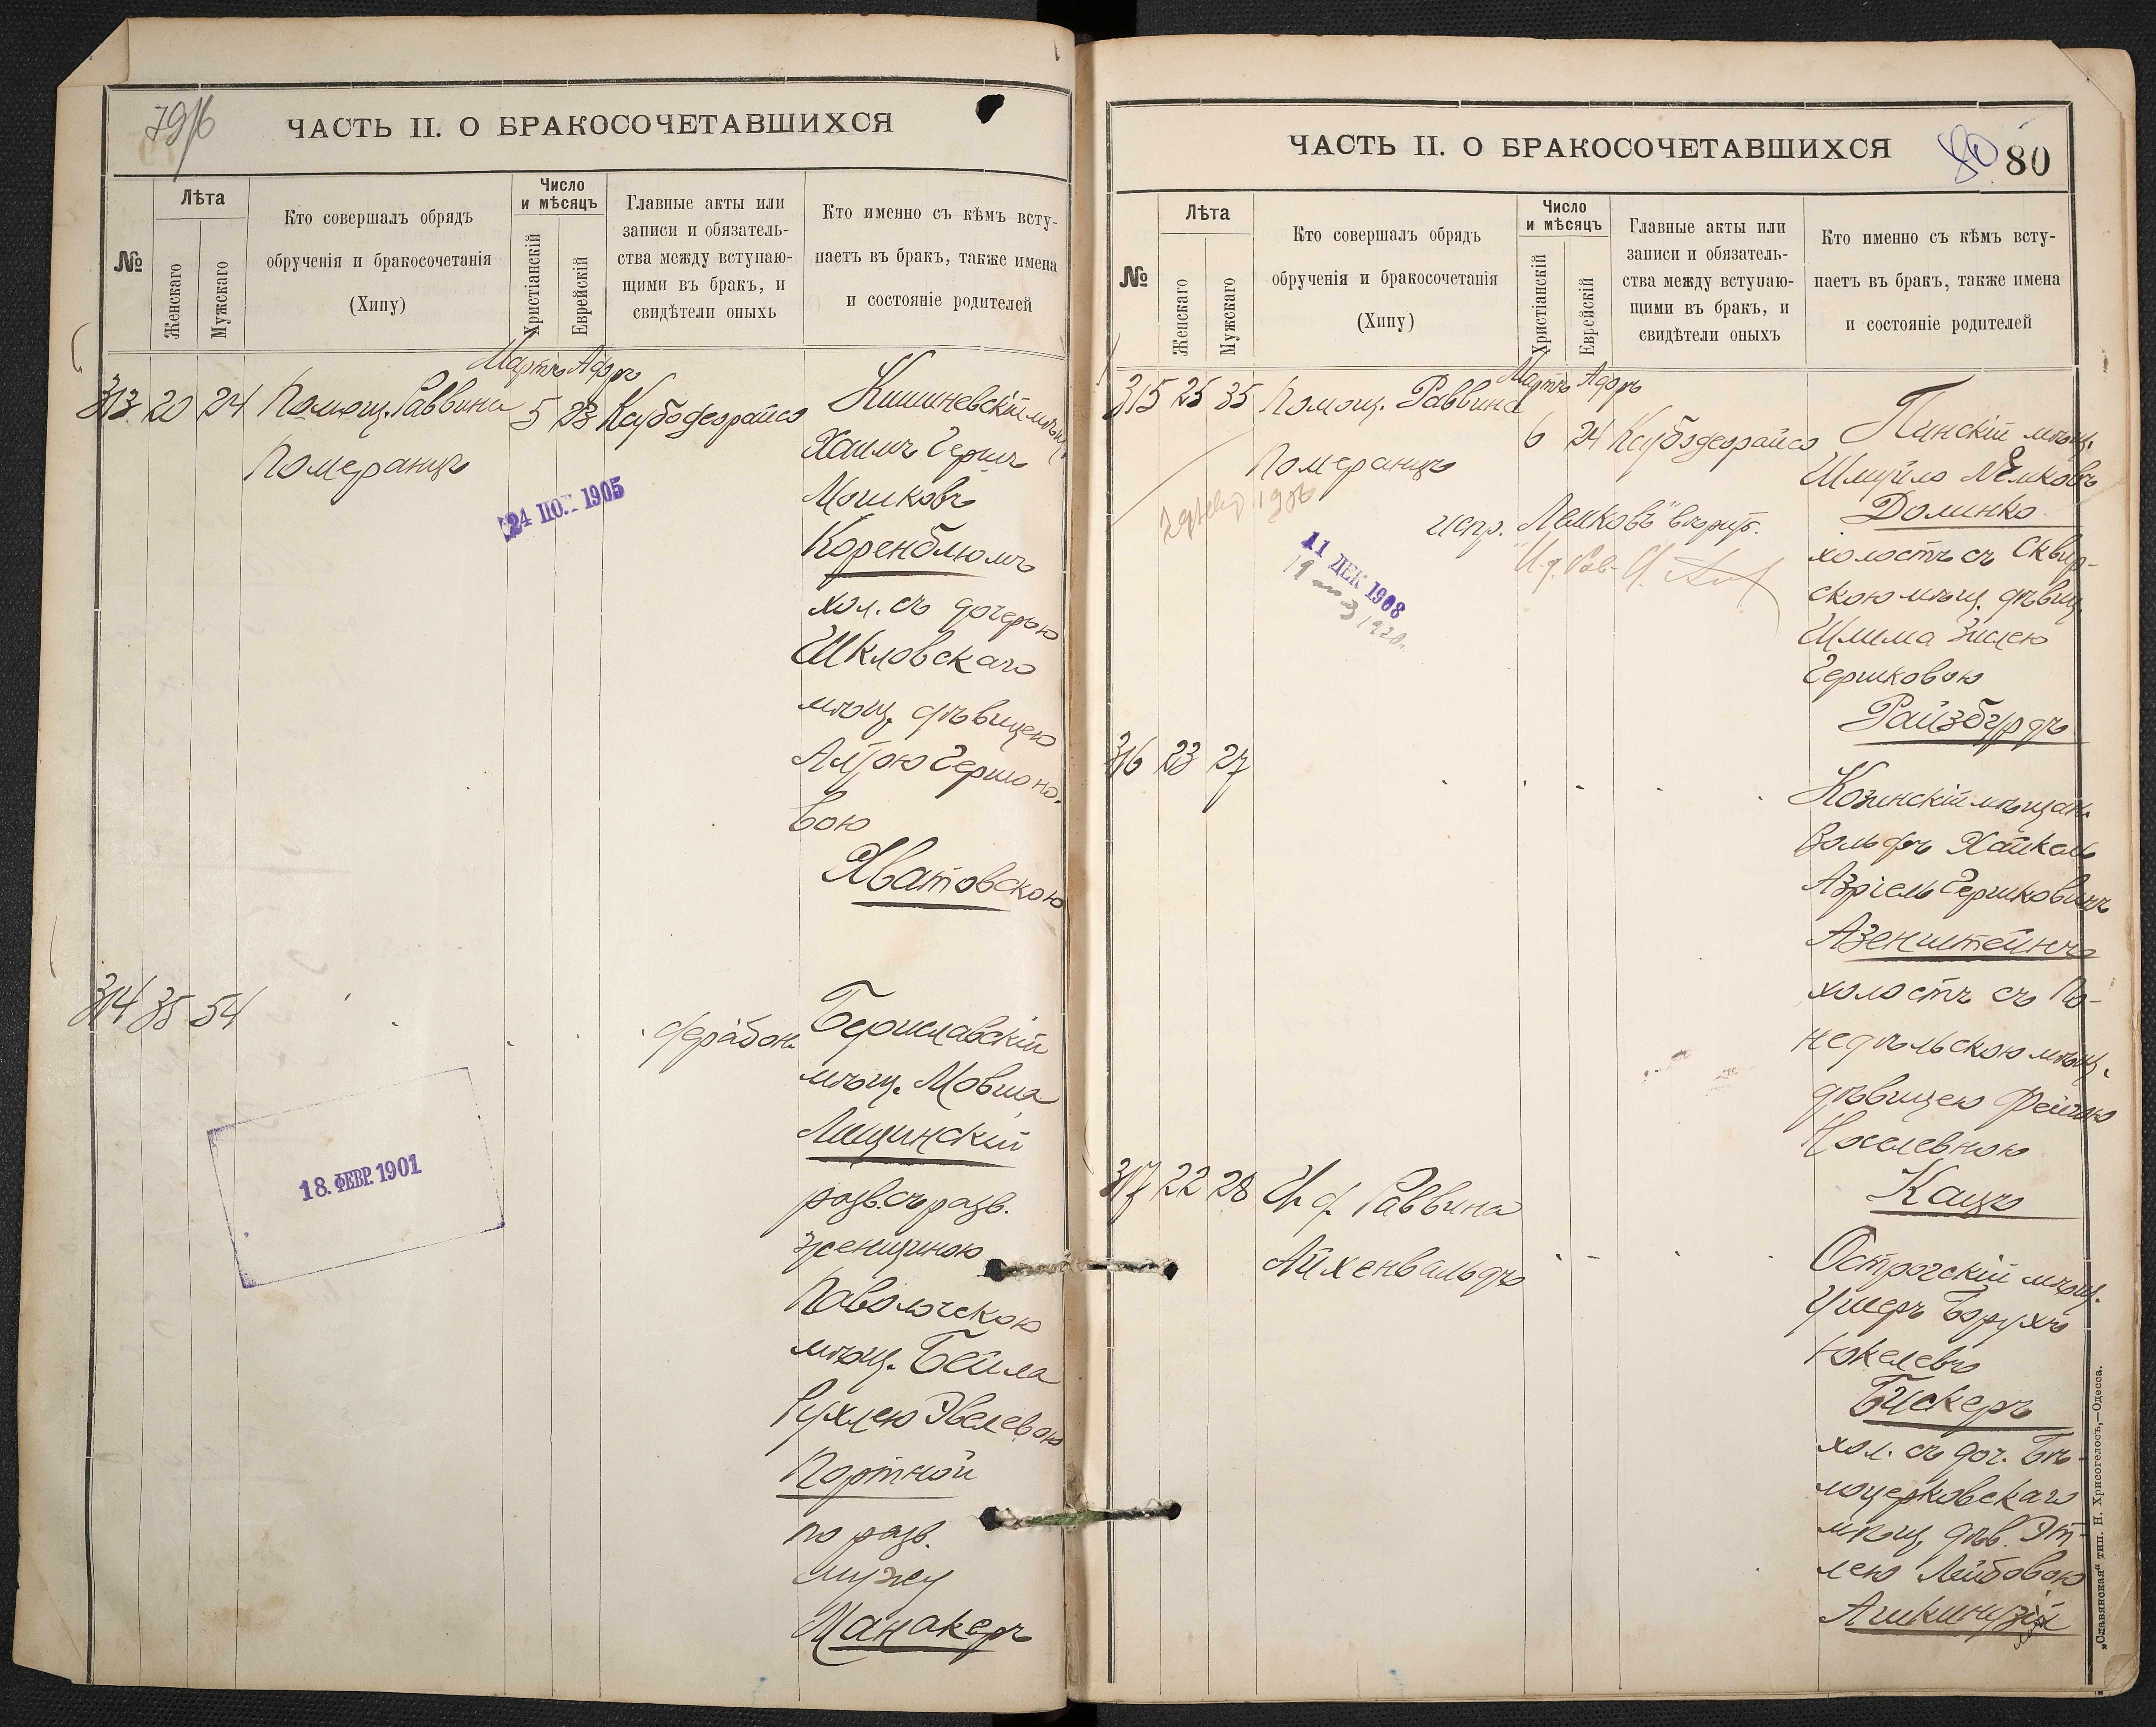 79/б
ЧАСТЬ II. О БРАКОСОЧЕТАВШИХСЯ
№
Лѣта
Женскаго
Мужскаго
Кто совершалъ обрядъ
обрученія и бракосочетанія
(Хипу)
Число
и мѣсяцъ
Христіанскій
Еврейскій
Главные акты или
записи и обязатель-
ства между вступаю-
щими въ бракъ, и
свидѣтели оныхъ
Кто именно съ кѣмъ всту-
паетъ въ бракъ, также имена
и состояніе родителей
Мартъ Адаръ
313 20 24 Помощ. Раввина 5 23 Каубодеорайсо
Померанцъ
24 1905
Кишиневскій мѣщ.
Хаимъ Гершъ
Мошковъ
Коренблюмъ
хол. съ дочерью
Шкловскаго
мѣщ. дѣвицею
Гершоно-
вою
Хватовскою
314 35 54
дерабон.
18. ФЕВР. 1901
Бериславскій
мѣщ. Мовша
Лещинскій
разв. съ разв.
женщиною
Паволочскою
мѣщ. Бейла
Рухлею Эвелевою
Портной
по разв.
мужу
Манакеръ
ЧАСТЬ II. О БРАКОСОЧЕТАВШИХСЯ
80 80
№
Лѣта
Женскаго
Мужскаго
Кто совершалъ обрядъ
обрученія и бракосочетанія
(Хипу)
Число
и мѣсяцъ
Христіанскій
Еврейскій
Главные акты или
записи и обязатель-
ства между вступаю-
щими въ бракъ, и
свидѣтели оныхъ
Кто именно съ кѣмъ всту-
паетъ въ бракъ, также имена
и состояніе родителей
Мартъ Адаръ
315 25 35 Помощ. Раввина 6 24 Каубодеорайсо
Померанцъ
испр. „Лемковъ" вѣрить.
11 ДЕК 1908
Пинскій мѣщ.
Шмуйло Лемковъ
Долинко
холостъ съ Сквир-
скою мѣщ. дѣвиц.
Шлима Зислею
Гершковою
Райзбурдъ
316 23 27
Козинскій мѣщан.
Вольфъ Хаикель
Азріель Гершковичъ
Азенштейнъ
холостъ съ По-
недѣльскою мѣщ.
дѣвицею Фейгою
Іоселевною
Кацъ
317 22 28 И. д. Раввина
Айхенвальдъ
Острогскій мѣщ.
Ушеръ Борухъ
Юкелевъ
Бискеръ
хол. съ доч. Бѣ-
лоцерковскаго
мѣщ. дѣв. Эт-
лею Лейбовою
Ашкинузій
„Славянская" тип. Н. Хрисогелосъ,—Одесса.